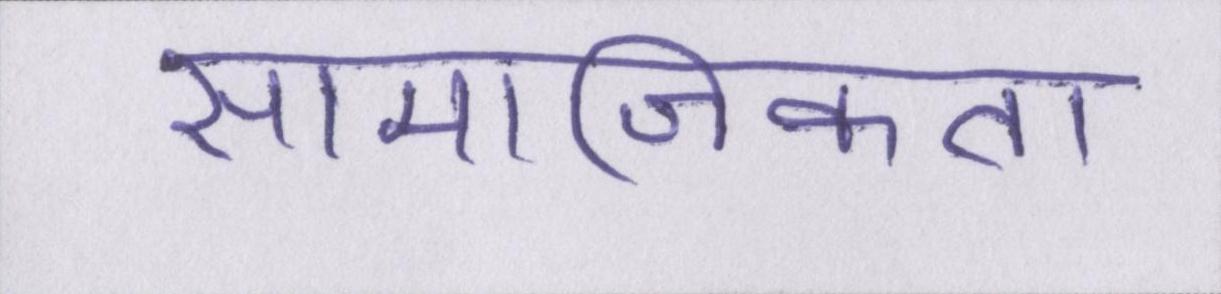 सामाजिकता